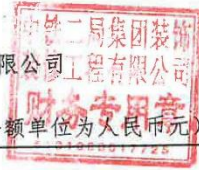 中铁二局集团装饰
装修工程有限公司
限公司
财务专用章
额单位为人民币元）